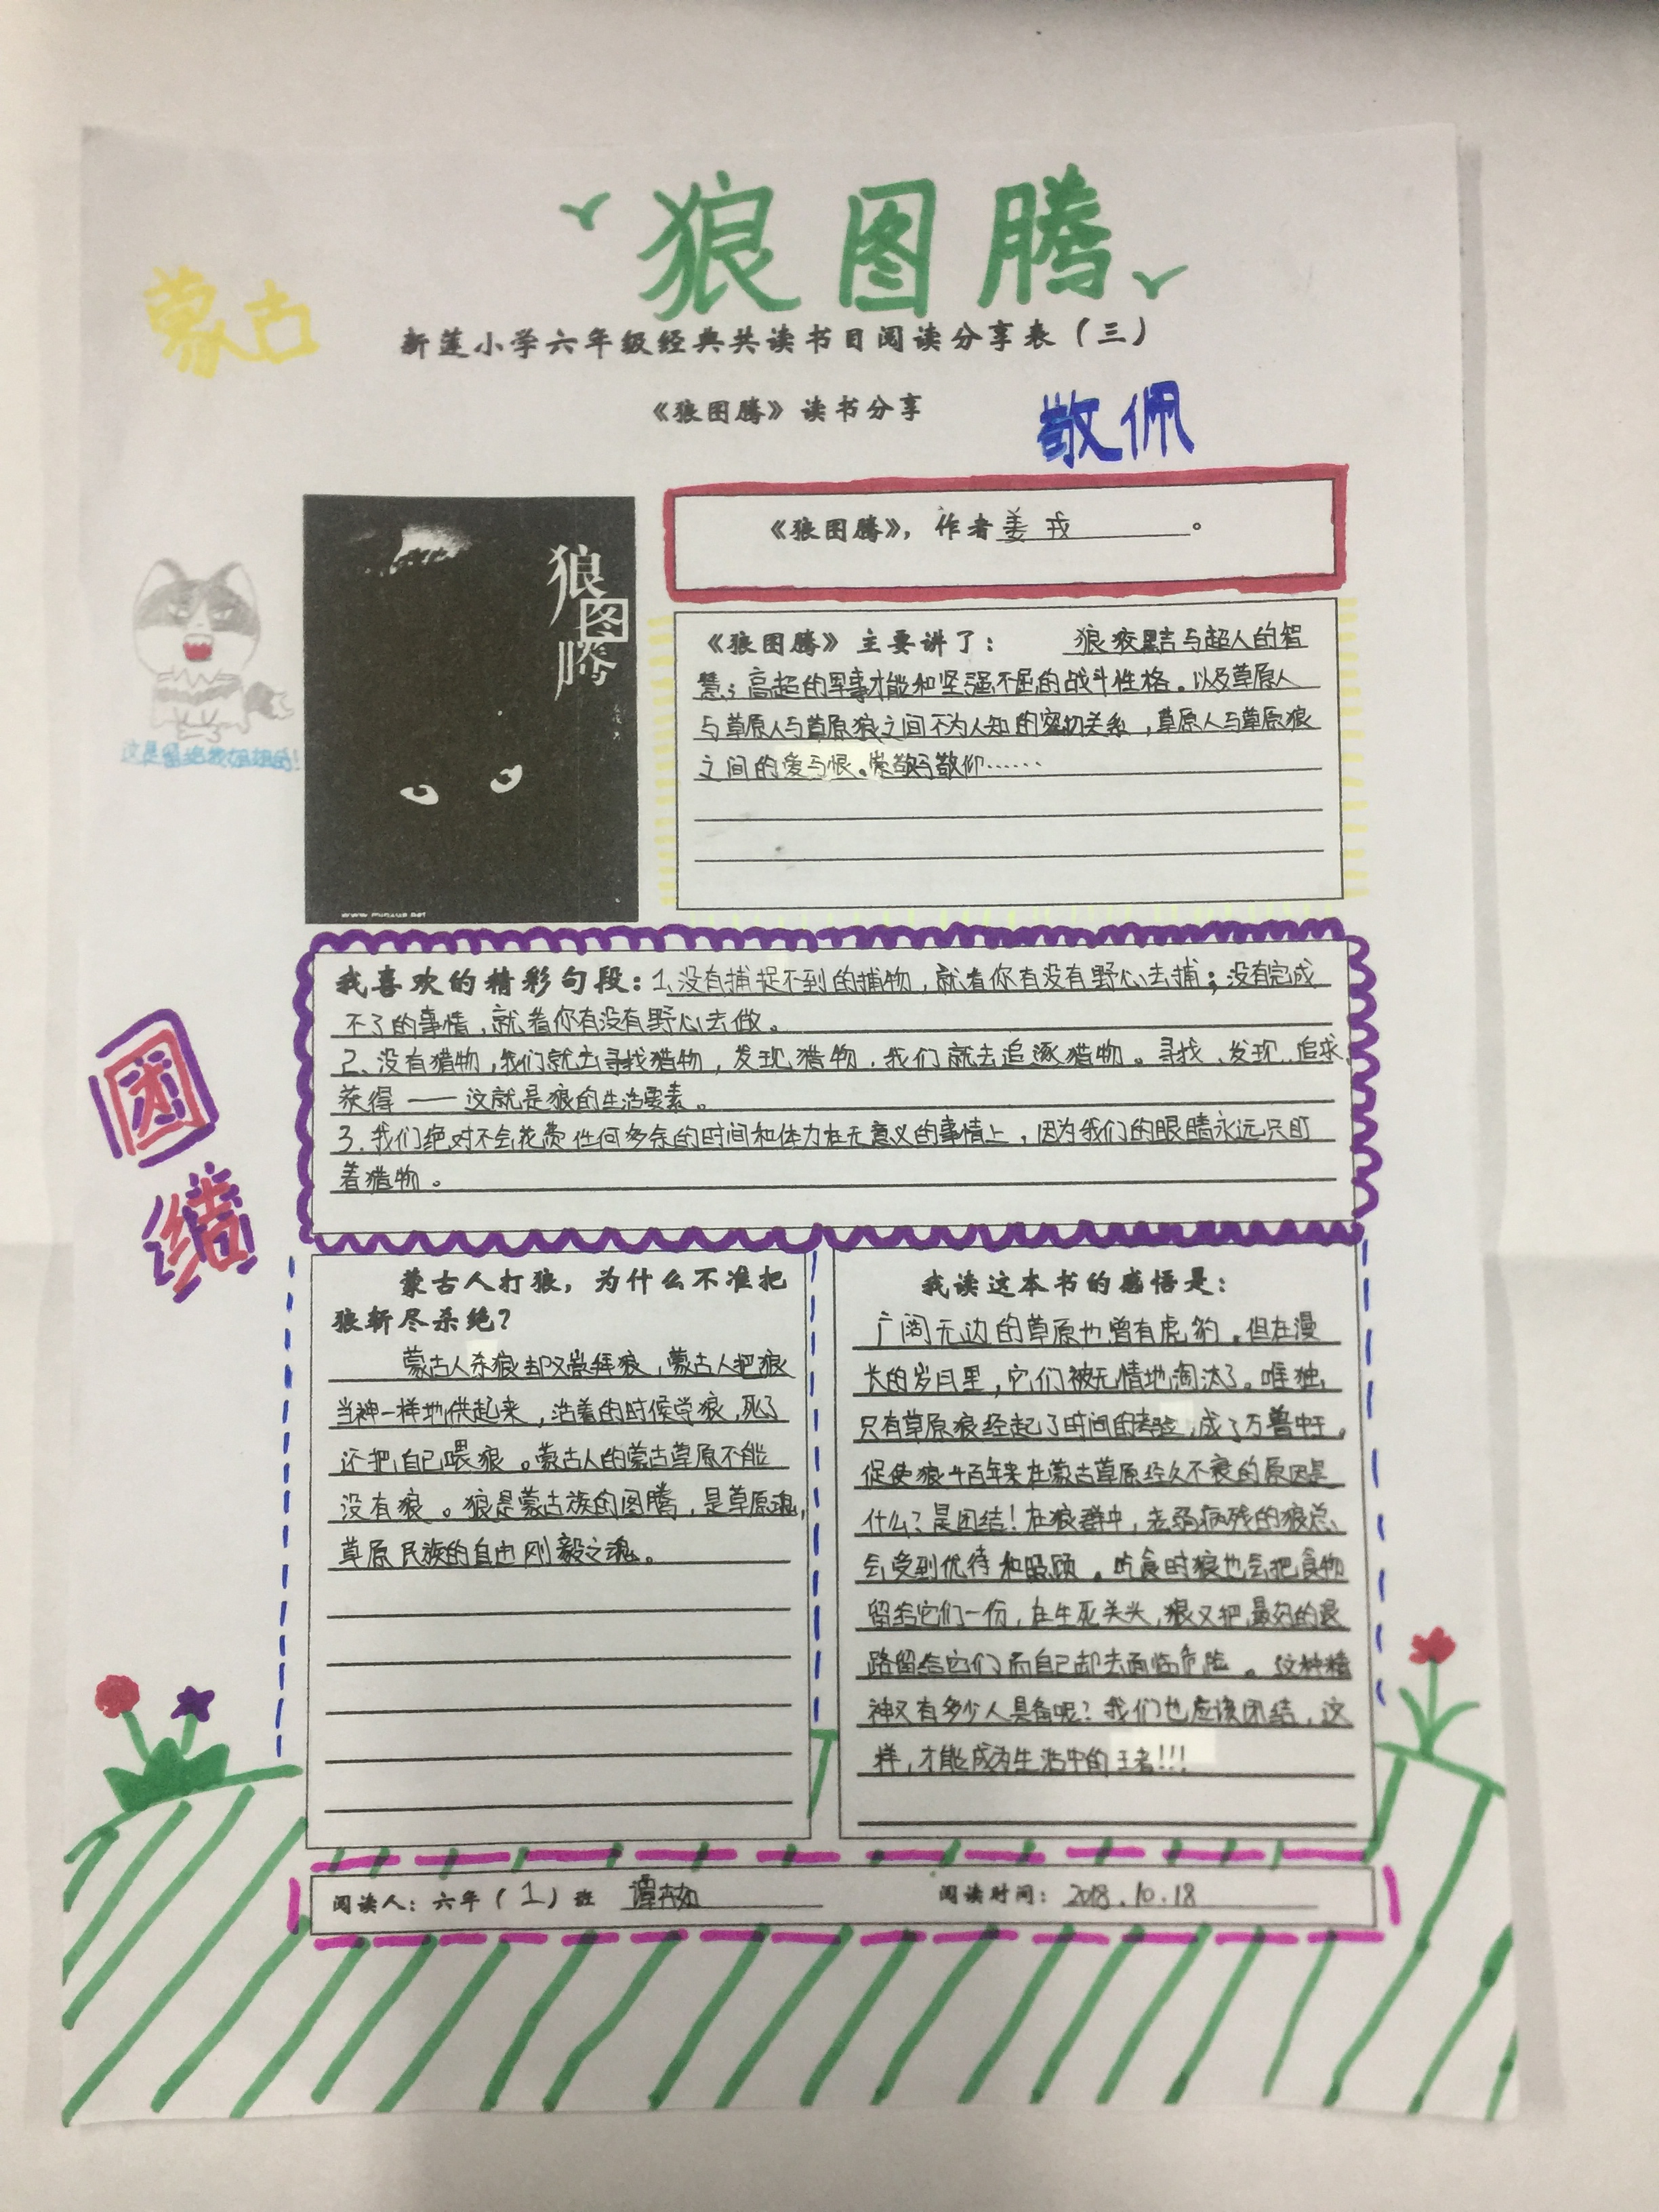 狼图腾
蒙古
新莲小学六年级经典共读书目阅读分享表（三）
《狼图腾》读书分享
敬佩
狼
图
腾
《狼图腾》，作者姜戎。
《狼图腾》主要讲了：狼狡黠与超人的智
慧；高超的军事才能和坚强不屈的战斗性格。以及草原人
与草原人与草原狼之间不为人知的密切关系，草原人与草原狼
之间的爱与恨。崇敬与敬仰……
这是留给我姐姐的！
我喜欢的精彩句段：1、没有捕捉不到的捕物，就看你有没有野心去捕；没有完成
不了的事情，就看你有没有野心去做。
2、没有猎物，我们就去寻找猎物，发现猎物，我们就去追逐猎物。寻找、发现、追求、
获得——这就是狼的生活要素。
3.我们绝对不会花费任何多余的时间和体力在无意义的事情上，因为我们的眼睛永远只盯
着猎物。
团结
蒙古人打狼，为什么不准把
狼斩尽杀绝？
蒙古人杀狼却又崇拜狼，蒙古人把狼
当神一样地供起来，活着的时候学狼，死了
还把自己喂狼。蒙古人的蒙古草原不能
没有狼。狼是蒙古族的图腾，是草原魂，
草原民族的自由刚毅之魂。
我读这本书的感悟是：
广阔无边的草原也曾有虎豹。但在漫
长的岁月里，它们被无情地淘汰了。唯独，
只有草原狼经起了时间的考验，成了万兽中王。
促使狼千百年来在蒙古草原经久不衰的原因是
什么？是团结！在狼群中，老弱病残的狼总
会受到优待和照顾。吃食时狼也会把食物
留给它们一份，在生死关头，狼又把最好的退
路留给它们而自己却去面临危险。这种精
神又有多少人具备呢？我们也应该团结，这
样，才能成为生活中的王者!!!
阅读人：六年（1）班 谭
阅读时间：2018.10.18